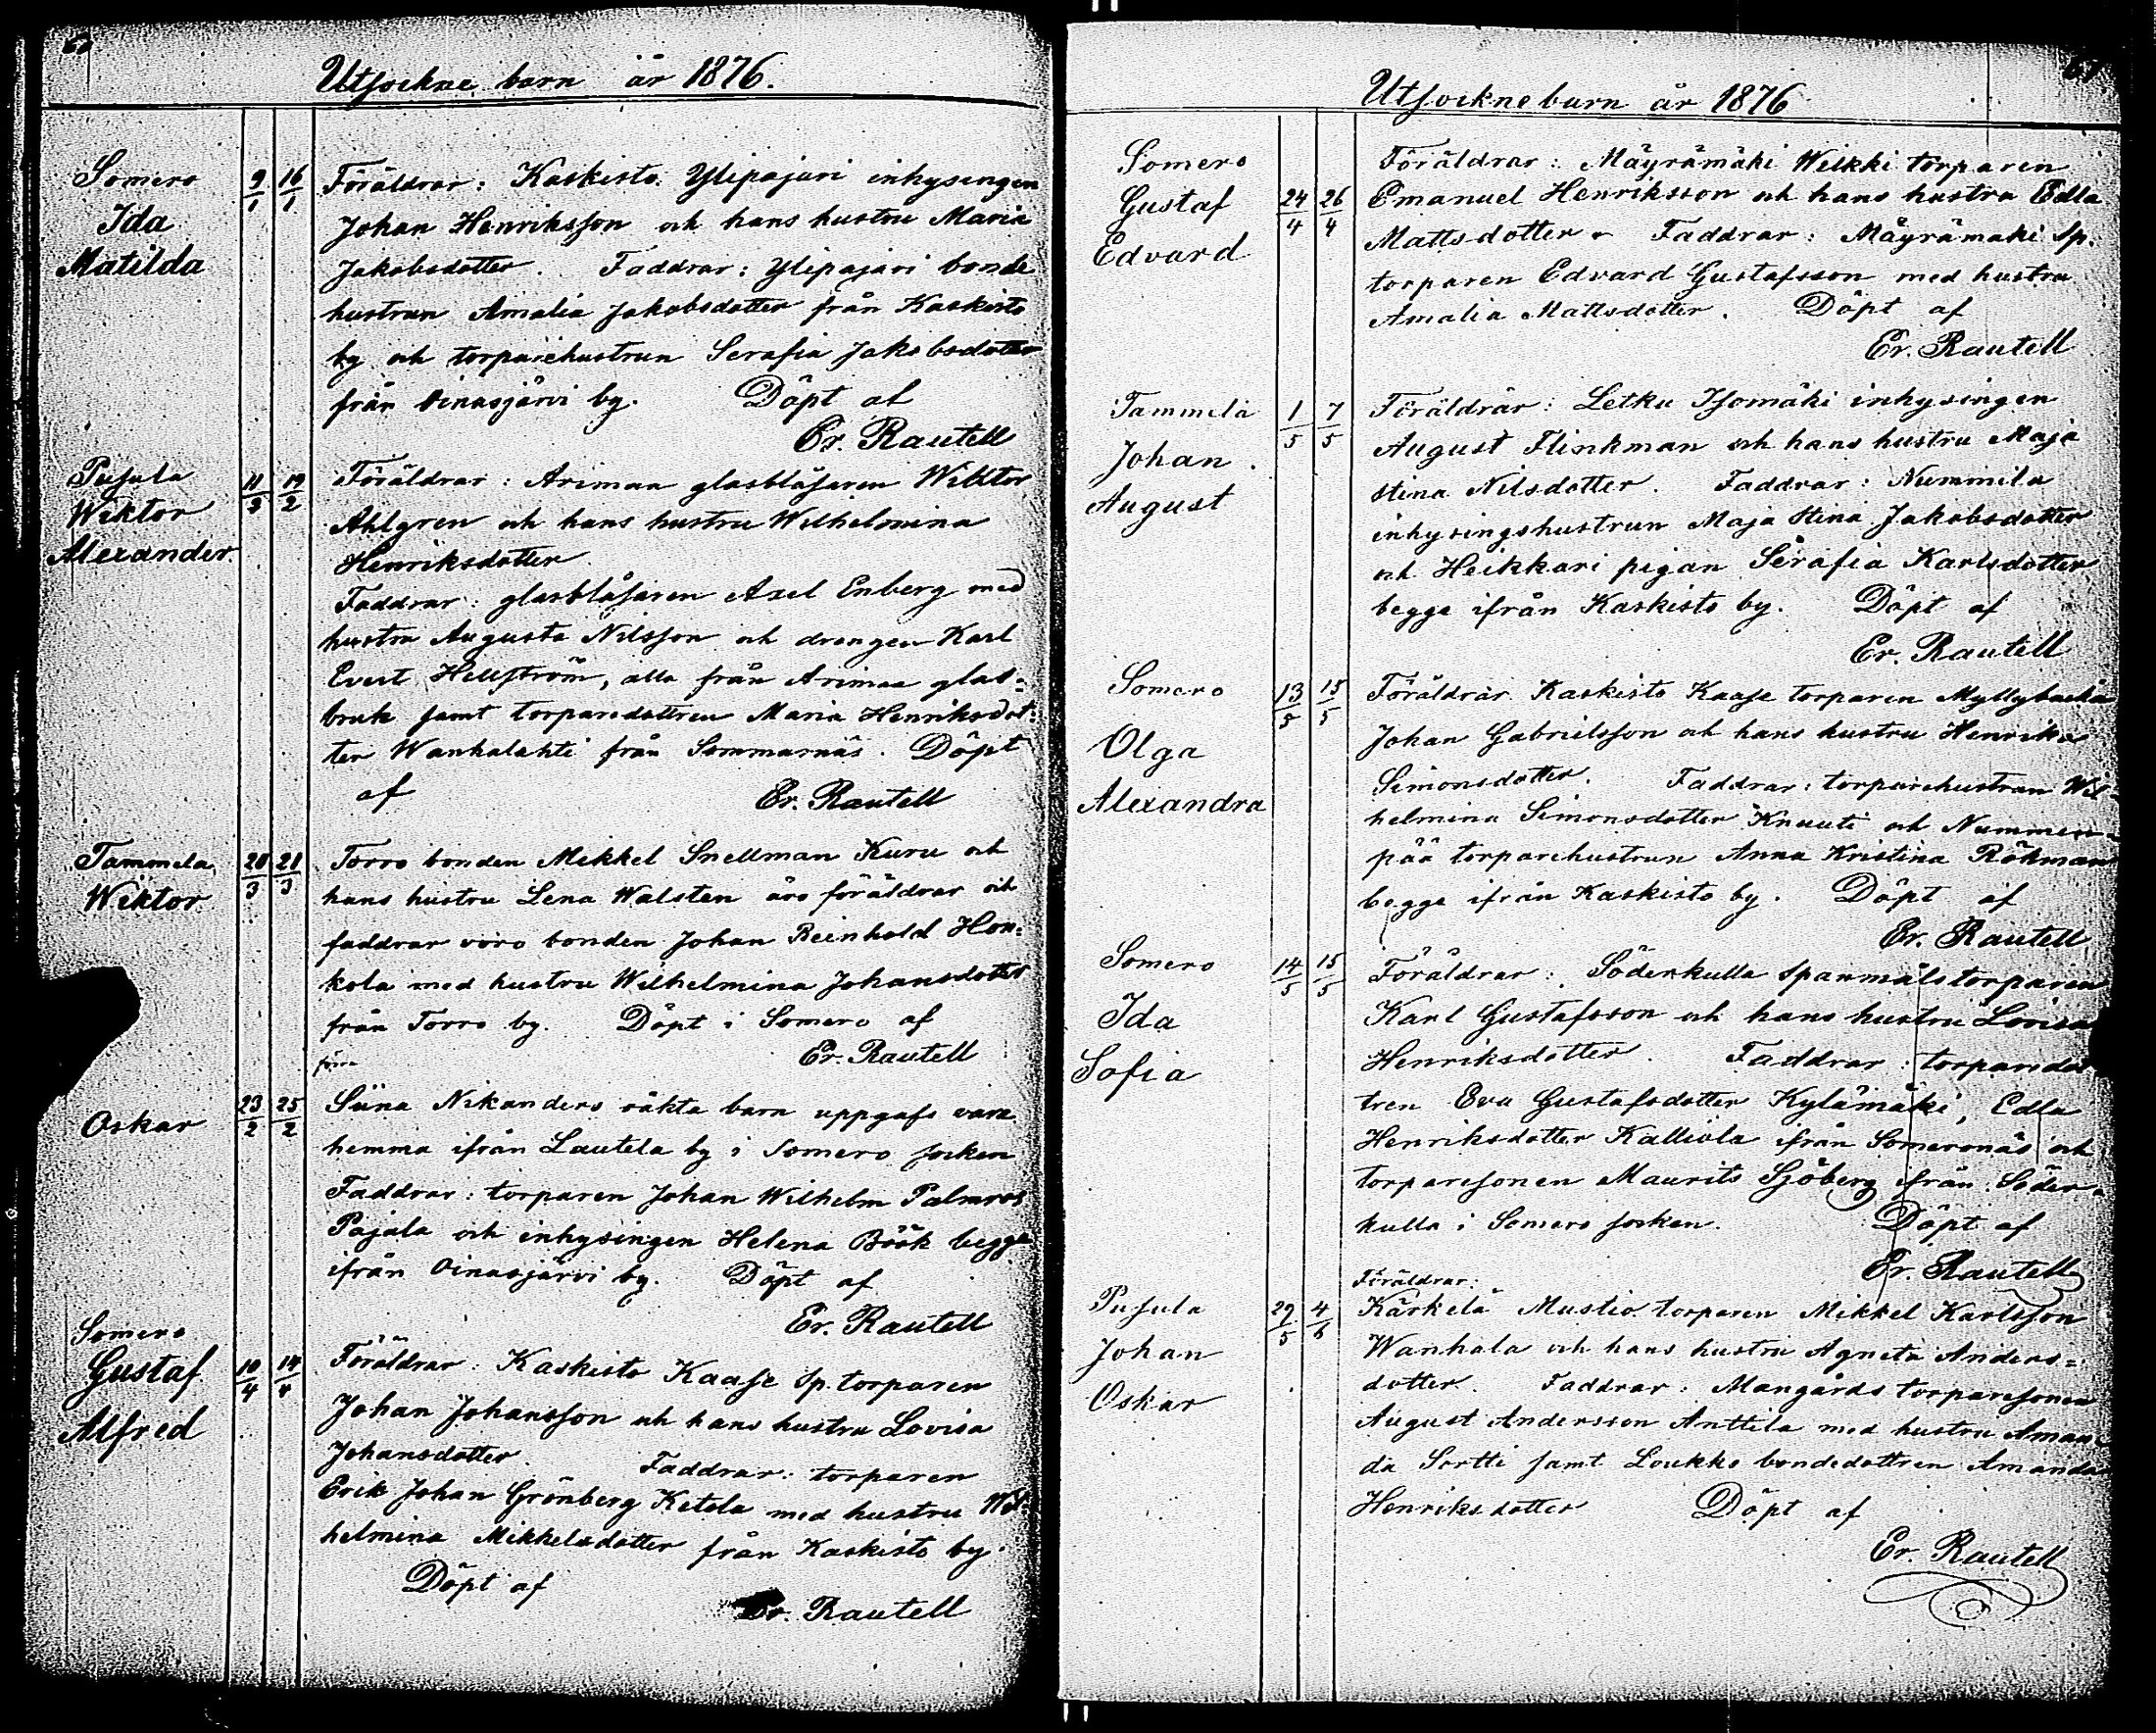 Utsockne barn år 1876.
Somero
Ida
Matilda
9/1 16/1
Föräldrar: Kaskisto Ylipajari inhysingen
Johan Henriksson och hans hustru Maria
Jakobsdotter. Faddrar: Ylipajari bonde
hustrun Amalia Jakobsdotter från Kaskisto
by och torparehustrun Serafia Jakobsdotter
från Oinasjärvi by. Döpt af
Er. Rautell
Pusula
Wiktor
Alexander.
19/2
Föräldrar: Arimaa glasblåsaren Wiktor
Ahlgren och hans hustru Wilhelmina
Henriksdotter.
Faddrar: glasblåsaren Axel Enberg med
hustru Augusta Nilsson och drengen Karl
Evert Hellström, alla från Arimaa glas-
bruk samt torparedottren Maria Henriksdot-
ter Wanhalahti från Sommarnäs. Döpt
af Er. Rautell
Tammela
Wiktor
20/3 21/3
Torro bonden Mikkel Snellman Kuru och
hans hustru Lena Walsten äro föräldrar och
faddrar voro bonden Johan Reinhold Hon-
kola med hustru Wilhelmina Johansdotter
från Torro by. Döpt i Somero af
Er. Rautell
Oskar
23/2 25/2
Siina Nikanders oäkta barn uppgafs vara
hemma ifrån Lautela by i Somero socken
Faddrar: torparen Johan Wilhelm Palmros
Pajala och inhysingen Helena Böök begge
ifrån Oinasjärvi by. Döpt af
Er. Rautell
Somero
Gustaf
Alfred
10/4 14/4
Föräldrar: Kaskisto Kaase Sp. torparen
Johan Johansson och hans hustru Lovisa
Johansdotter. Faddrar: torparen
Erik Johan Grönberg Ketola med hustru Wil-
helmina Mikkelsdotter från Kaskisto by.
Döpt af
Er. Rautell
Utsockne barn år 1876
Somero
Gustaf
Edvard
24/4 26/4
Föräldrar: Mäyrämäki Wilkki torparen
Emanuel Henriksson och hans hustru Edla
Mattsdotter Faddrar: Mäyrämäki Sp.
torparen Edvard Gustafsson med hustru
Amalia Mattsdotter. Döpt af
Er. Rautell
Tammela
Johan
August
1/5 7/5
Föräldrar: Letku Isomäki inhysingen
August Flinkman och hans hustru Maja
Stina Nilsdotter. Faddrar: Nummila
inhysingshustrun Maja Stina Jakobsdotter
och Heikkari pigan Serafia Karlsdotter
begge ifrån Kaskisto by. Döpt af
Er. Rautell
Somero
Olga
Alexandra
13/5 15/5
Föräldrar Kaskisto Kaase torparen Myllybacka
Johan Gabrielsson och hans hustru Henrika
Simonsdotter. Faddrar: torparehustrun Wil-
helmina Simonsdotter Knuuti och Nummen-
pää torparehustrun Anna Kristina Röhman
begge ifrån Kaskisto by. Döpt af
Er. Rautell
Somero
Ida
Sofia
14/5 15/5
Föräldrar: Söderkulla Spanmålstorparen
Karl Gustafsson och hans hustru Lovisa
Henriksdotter. Faddrar: torparedot
tren Eva Gustafsdotter Kylämäki, Edla
Henriksdotter Kalliola ifrån Someronäs och
torparesonen Maurits Sjöberg ifrån Söder-
kulla i Somero socken. Döpt af
Er. Rautell
Pusula
Johan
Oskar
29/5 4/6
Föräldrar:
Kärkelä Mustio torparen Mikkel Karlsson
Wanhala och hans hustru Agneta Anders-
dotter. Faddrar: Mangårds torparesonen
August Andersson Anttila med hustru Aman-
da Sortti samt Loukko bondedottren Amanda
Henriksdotter Döpt af
Er. Rautell